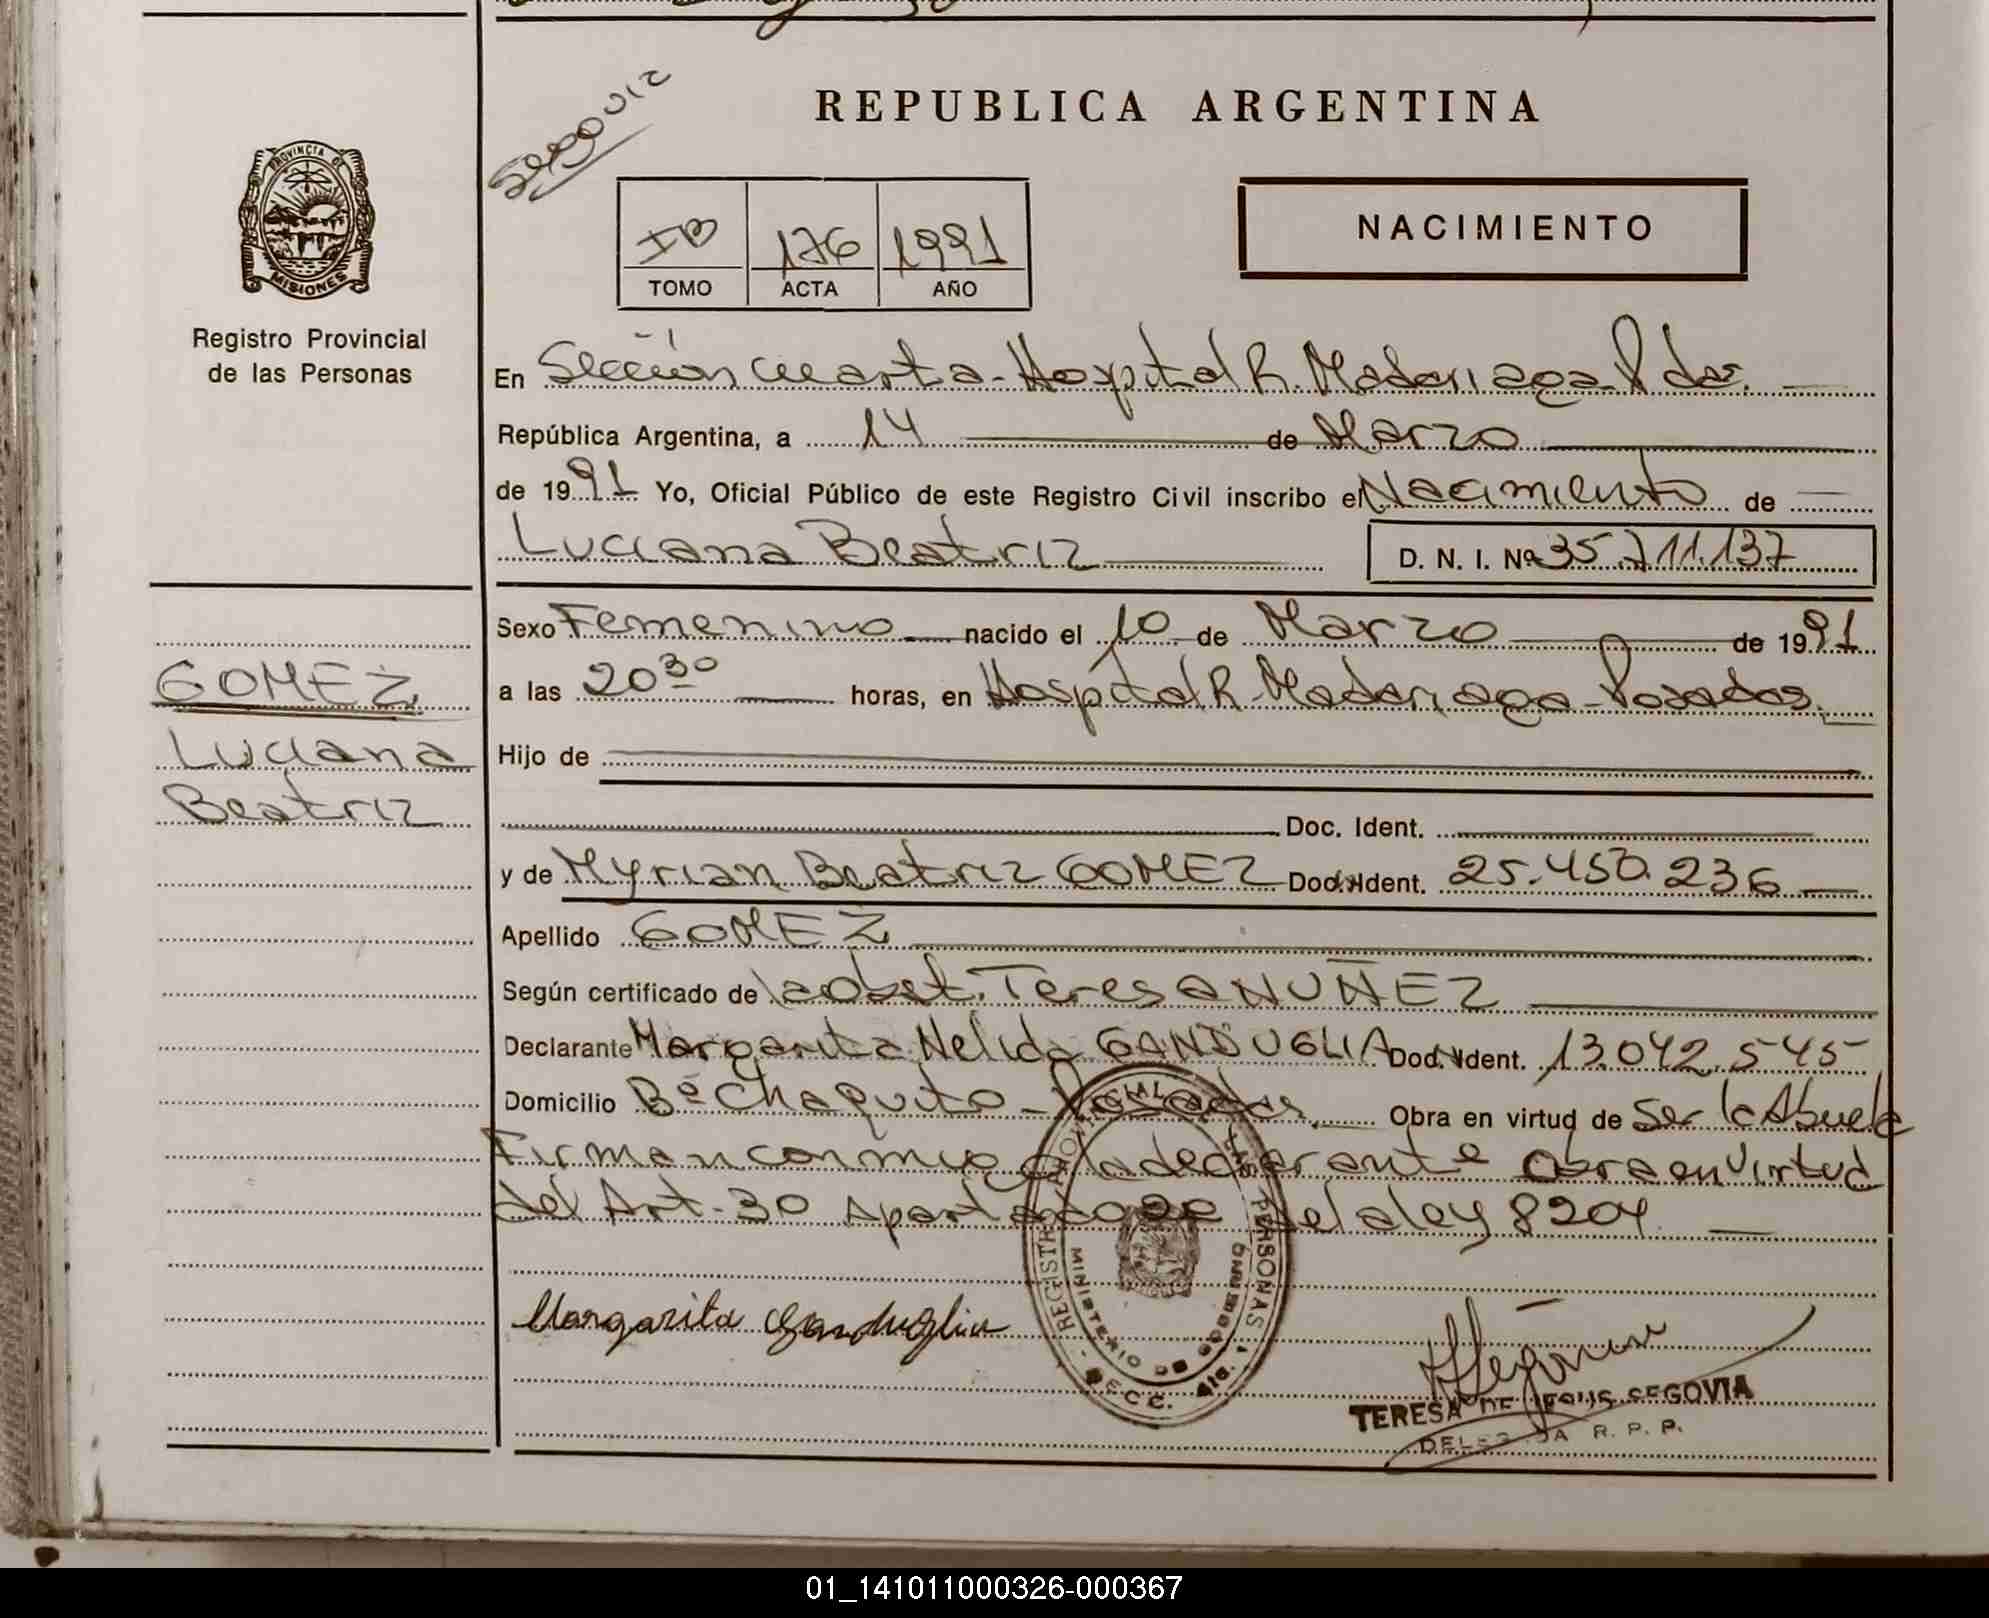 REPUBLICA ARGENTINA
Segovia
PROVINCIA DE
MISIONES
Registro Provincial
de las Personas
IB 176 1991
TOMO ACTA AÑO
NACIMIENTO
En Sección cuarta - Hospital R. Madariaga Pdas.
República Argentina, a 14 de Marzo
de 1991 Yo, Oficial Público de este Registro Civil inscribo el Nacimiento de
Luciana Beatriz D. N. I. Nº 35.711.137
Sexo Femenino nacido el 10 de Marzo de 1991
a las 20 30 horas, en Hospital R. Madariaga - Posadas.
Hijo de
Doc. Ident.
y de Myrian Beatriz GOMEZ Doc. Ident. 25.450.236
Apellido GOMEZ
Según certificado de Teresa NUÑEZ
Declarante Margarita Nelida GANDUGLIA Doc. Ident. 13.042.545
Domicilio Bº Chaquito - Posadas Obra en virtud de ser la Abuela
Firman conmigo la declarante Obra en virtud
del Art. 30 Apartado de la ley 8204
GOMEZ
Luciana
Beatriz
Margarita Ganduglia
REGISTRO PROVINCIAL DE LAS PERSONAS
MINISTERIO DE GOBIERNO
SECC. 4ta.
TERESA DE JESUS SEGOVIA
DELEGADA R. P. P.
01_141011000326-000367